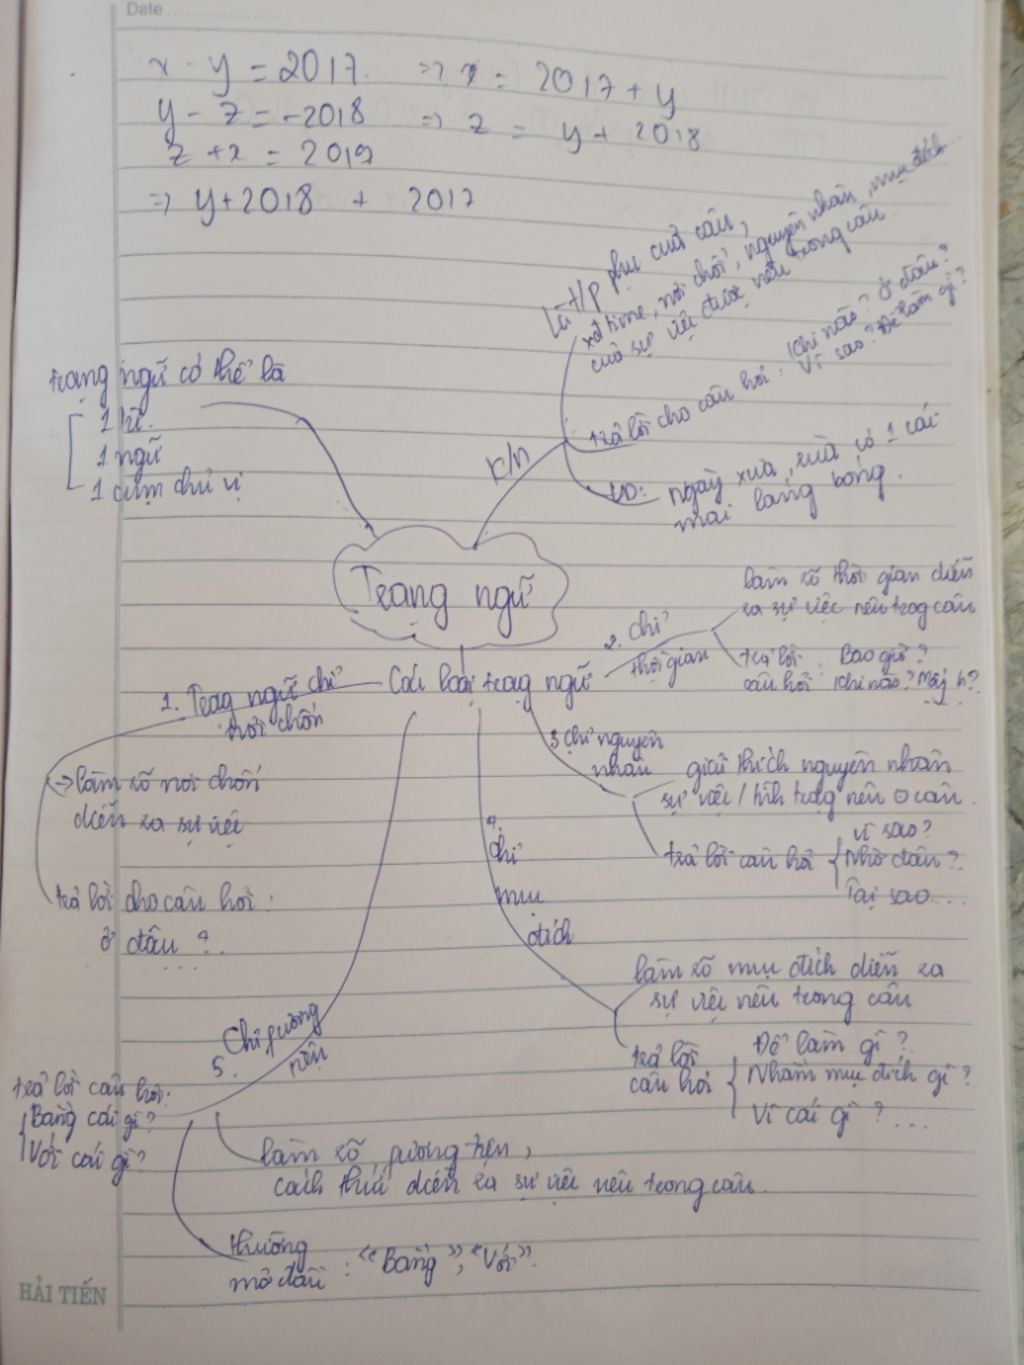 Date
x - y = 2017. => x = 2017 + y
y - z = -2018 => z = y + 2018
z + x = 2019
=> y + 2018 + 2017
Là t/p phụ của câu,
xđ time, nơi chốn, nguyên nhân, mục đích...
của sự việc được nêu trong câu.
trả lời cho câu hỏi: Khi nào? Ở đâu?
Vì sao? Để làm gì?
K/n
VD: ngày xưa, rùa có 1 cái
mai láng bóng.
trạng ngữ có thể là
1 từ.
1 ngữ
1 cụm chủ vị
Trạng ngữ
Các loại trạg ngữ
1. Trạg ngữ chỉ
nơi chốn
-> làm rõ nơi chốn
diễn ra sự việc
trả lời cho câu hỏi:
ở đâu?...
2. chỉ
thời gian
làm rõ thời gian diễn
ra sự việc nêu trog câu
trả lời
câu hỏi: Bao giờ?
Khi nào? Mấy h?
...
3 chỉ nguyên
nhân
giải thích nguyên nhân
sự việc / tình trạg nêu ở câu.
trả lời câu hỏi
Vì sao?
Nhờ đâu?
Tại sao...
4.
chỉ
mục
đích
làm rõ mục đích diễn ra
sự việc nêu trong câu
trả lời
câu hỏi
Để làm gì?
Nhằm mục đích gì?
Vì cái gì?...
5. Chỉ phương
tiện
trả lời câu hỏi:
Bằng cái gì?
Với cái gì?
làm rõ phương tiện,
cách thức diễn ra sự việc nêu trong câu.
thường
mở đầu: "Bằng", "Với".
HẢI TIẾN